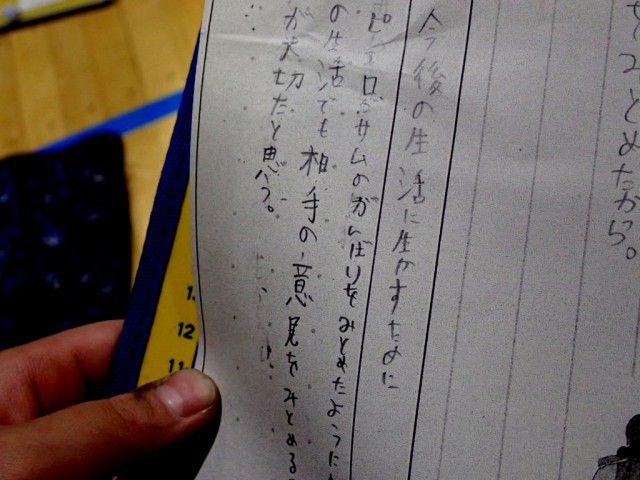 をみとめたから。
今後の生活に生かすために
ピエロがサムのがんばりをみとめたように
の生活でも相手の意見をみとめる
が大切だと思う。
12
11